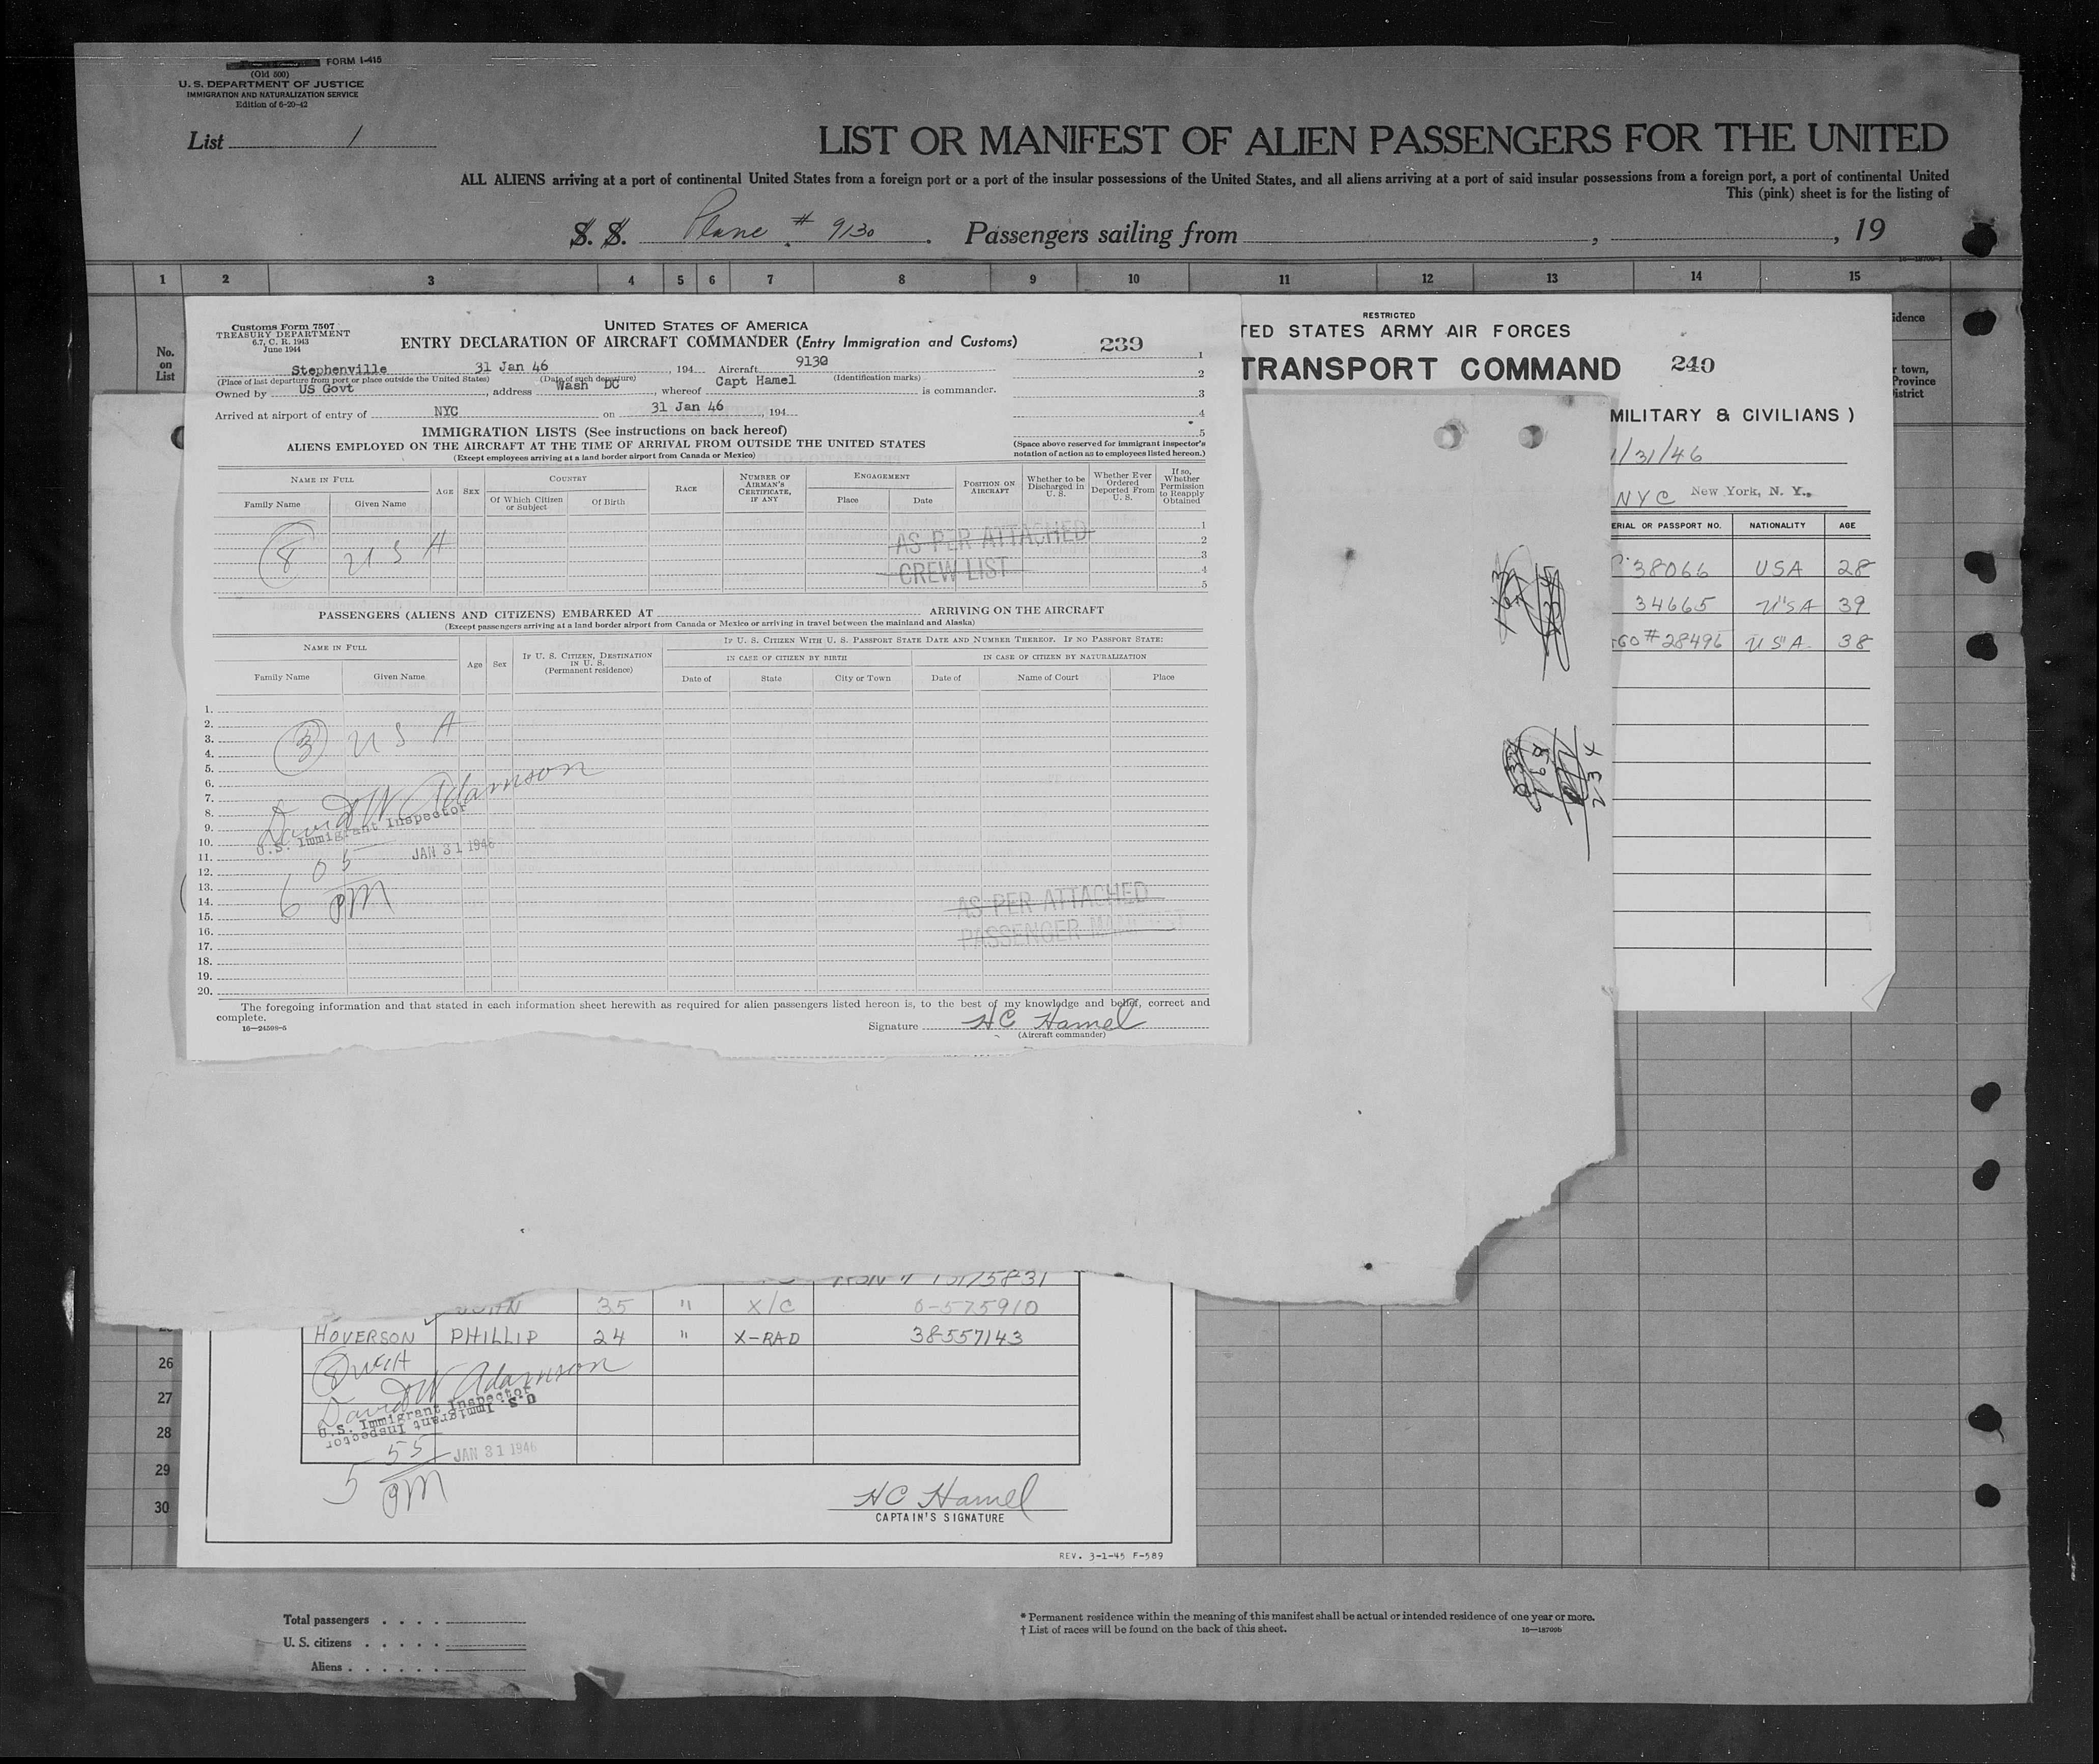 FORM I-415
(Old 500)
U. S. DEPARTMENT OF JUSTICE
IMMIGRATION AND NATURALIZATION SERVICE
Edition of 6-20-42
List 1
LIST OR MANIFEST OF ALIEN PASSENGERS FOR THE UNITED
ALL ALIENS arriving at a port of continental United States from a foreign port or a port of the insular possessions of the United States, and all aliens arriving at a port of said insular possessions from a foreign port, a port of continental United
This (pink) sheet is for the listing of
S. S. Plane # 9130 . Passengers sailing from , , 19
1 2 3 4 5 6 7 8 9 10 11 12 13 14 15
No. on List
Customs Form 7507
TREASURY DEPARTMENT
6.7, C. R. 1943
June 1944
UNITED STATES OF AMERICA
ENTRY DECLARATION OF AIRCRAFT COMMANDER (Entry Immigration and Customs)
239
Stephenville 31 Jan 46 , 194 Aircraft 9130
(Place of last departure from port or place outside the United States) (Date of such departure) (Identification marks)
Owned by US Govt , address Wash DC , whereof Capt Hamel is commander.
Arrived at airport of entry of NYC on 31 Jan 46 , 194
1
2
3
4
5
IMMIGRATION LISTS (See instructions on back hereof)
ALIENS EMPLOYED ON THE AIRCRAFT AT THE TIME OF ARRIVAL FROM OUTSIDE THE UNITED STATES
(Except employees arriving at a land border airport from Canada or Mexico)
(Space above reserved for immigrant inspector's notation of action as to employees listed hereon.)
NAME IN FULL
Family Name Given Name
AGE SEX
COUNTRY
Of Which Citizen or Subject Of Birth
RACE
NUMBER OF AIRMAN'S CERTIFICATE, IF ANY
ENGAGEMENT
Place Date
POSITION ON AIRCRAFT
Whether to be Discharged in U. S.
Whether Ever Ordered Deported From U. S.
If so, Whether Permission to Reapply Obtained
8 USA
AS PER ATTACHED
CREW LIST
1
2
3
4
5
PASSENGERS (ALIENS AND CITIZENS) EMBARKED AT ARRIVING ON THE AIRCRAFT
(Except passengers arriving at a land border airport from Canada or Mexico or arriving in travel between the mainland and Alaska)
NAME IN FULL
Family Name Given Name
Age Sex
IF U. S. CITIZEN, DESTINATION IN U. S. (Permanent residence)
IF U. S. CITIZEN WITH U. S. PASSPORT STATE DATE AND NUMBER THEREOF. IF NO PASSPORT STATE:
IN CASE OF CITIZEN BY BIRTH IN CASE OF CITIZEN BY NATURALIZATION
Date of State City or Town Date of Name of Court Place
1.
2.
3.
4.
5.
6.
7.
8.
9.
10.
11.
12.
13.
14.
15.
16.
17.
18.
19.
20.
3 USA
David W Adamson
U.S. Immigrant Inspector
JAN 31 1946
6 05 PM
AS PER ATTACHED
PASSENGER MANIFEST
The foregoing information and that stated in each information sheet herewith as required for alien passengers listed hereon is, to the best of my knowledge and belief, correct and
complete.
16-24598-5
Signature HC Hamel
(Aircraft commander)
RESTRICTED
TED STATES ARMY AIR FORCES
TRANSPORT COMMAND 240
MILITARY & CIVILIANS )
1/31/46
NYC New York, N. Y.,
ERIAL OR PASSPORT NO. NATIONALITY AGE
38066 USA 28
34665 USA 39
GO #28496 USA 38
idence
r town,
Province
istrict
234
15175831
35 " X/C 0-575910
HOVERSON PHILLIP 24 " X-RAD 38557143
8 USA
David W Adamson
U.S. Immigrant Inspector
U.S. Immigrant Inspector
5 55 PM
JAN 31 1946
HC Hamel
CAPTAIN'S SIGNATURE
REV. 3-1-45 F-589
26
27
28
29
30
Total passengers
U. S. citizens
Aliens
* Permanent residence within the meaning of this manifest shall be actual or intended residence of one year or more.
† List of races will be found on the back of this sheet.